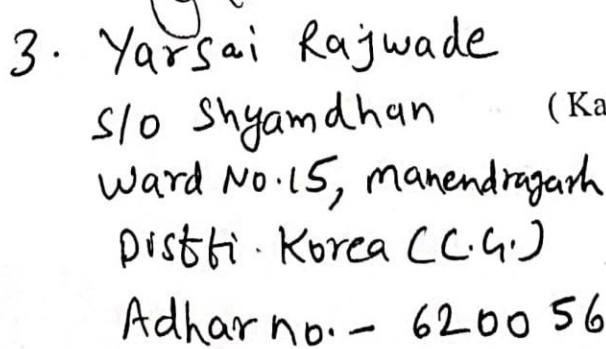 3. Yarsai Rajwade
S/o Shyamdhan (Ka
Ward No.15, Manendragarh
Distti. Korea (C.G.)
Adhar no. - 620056